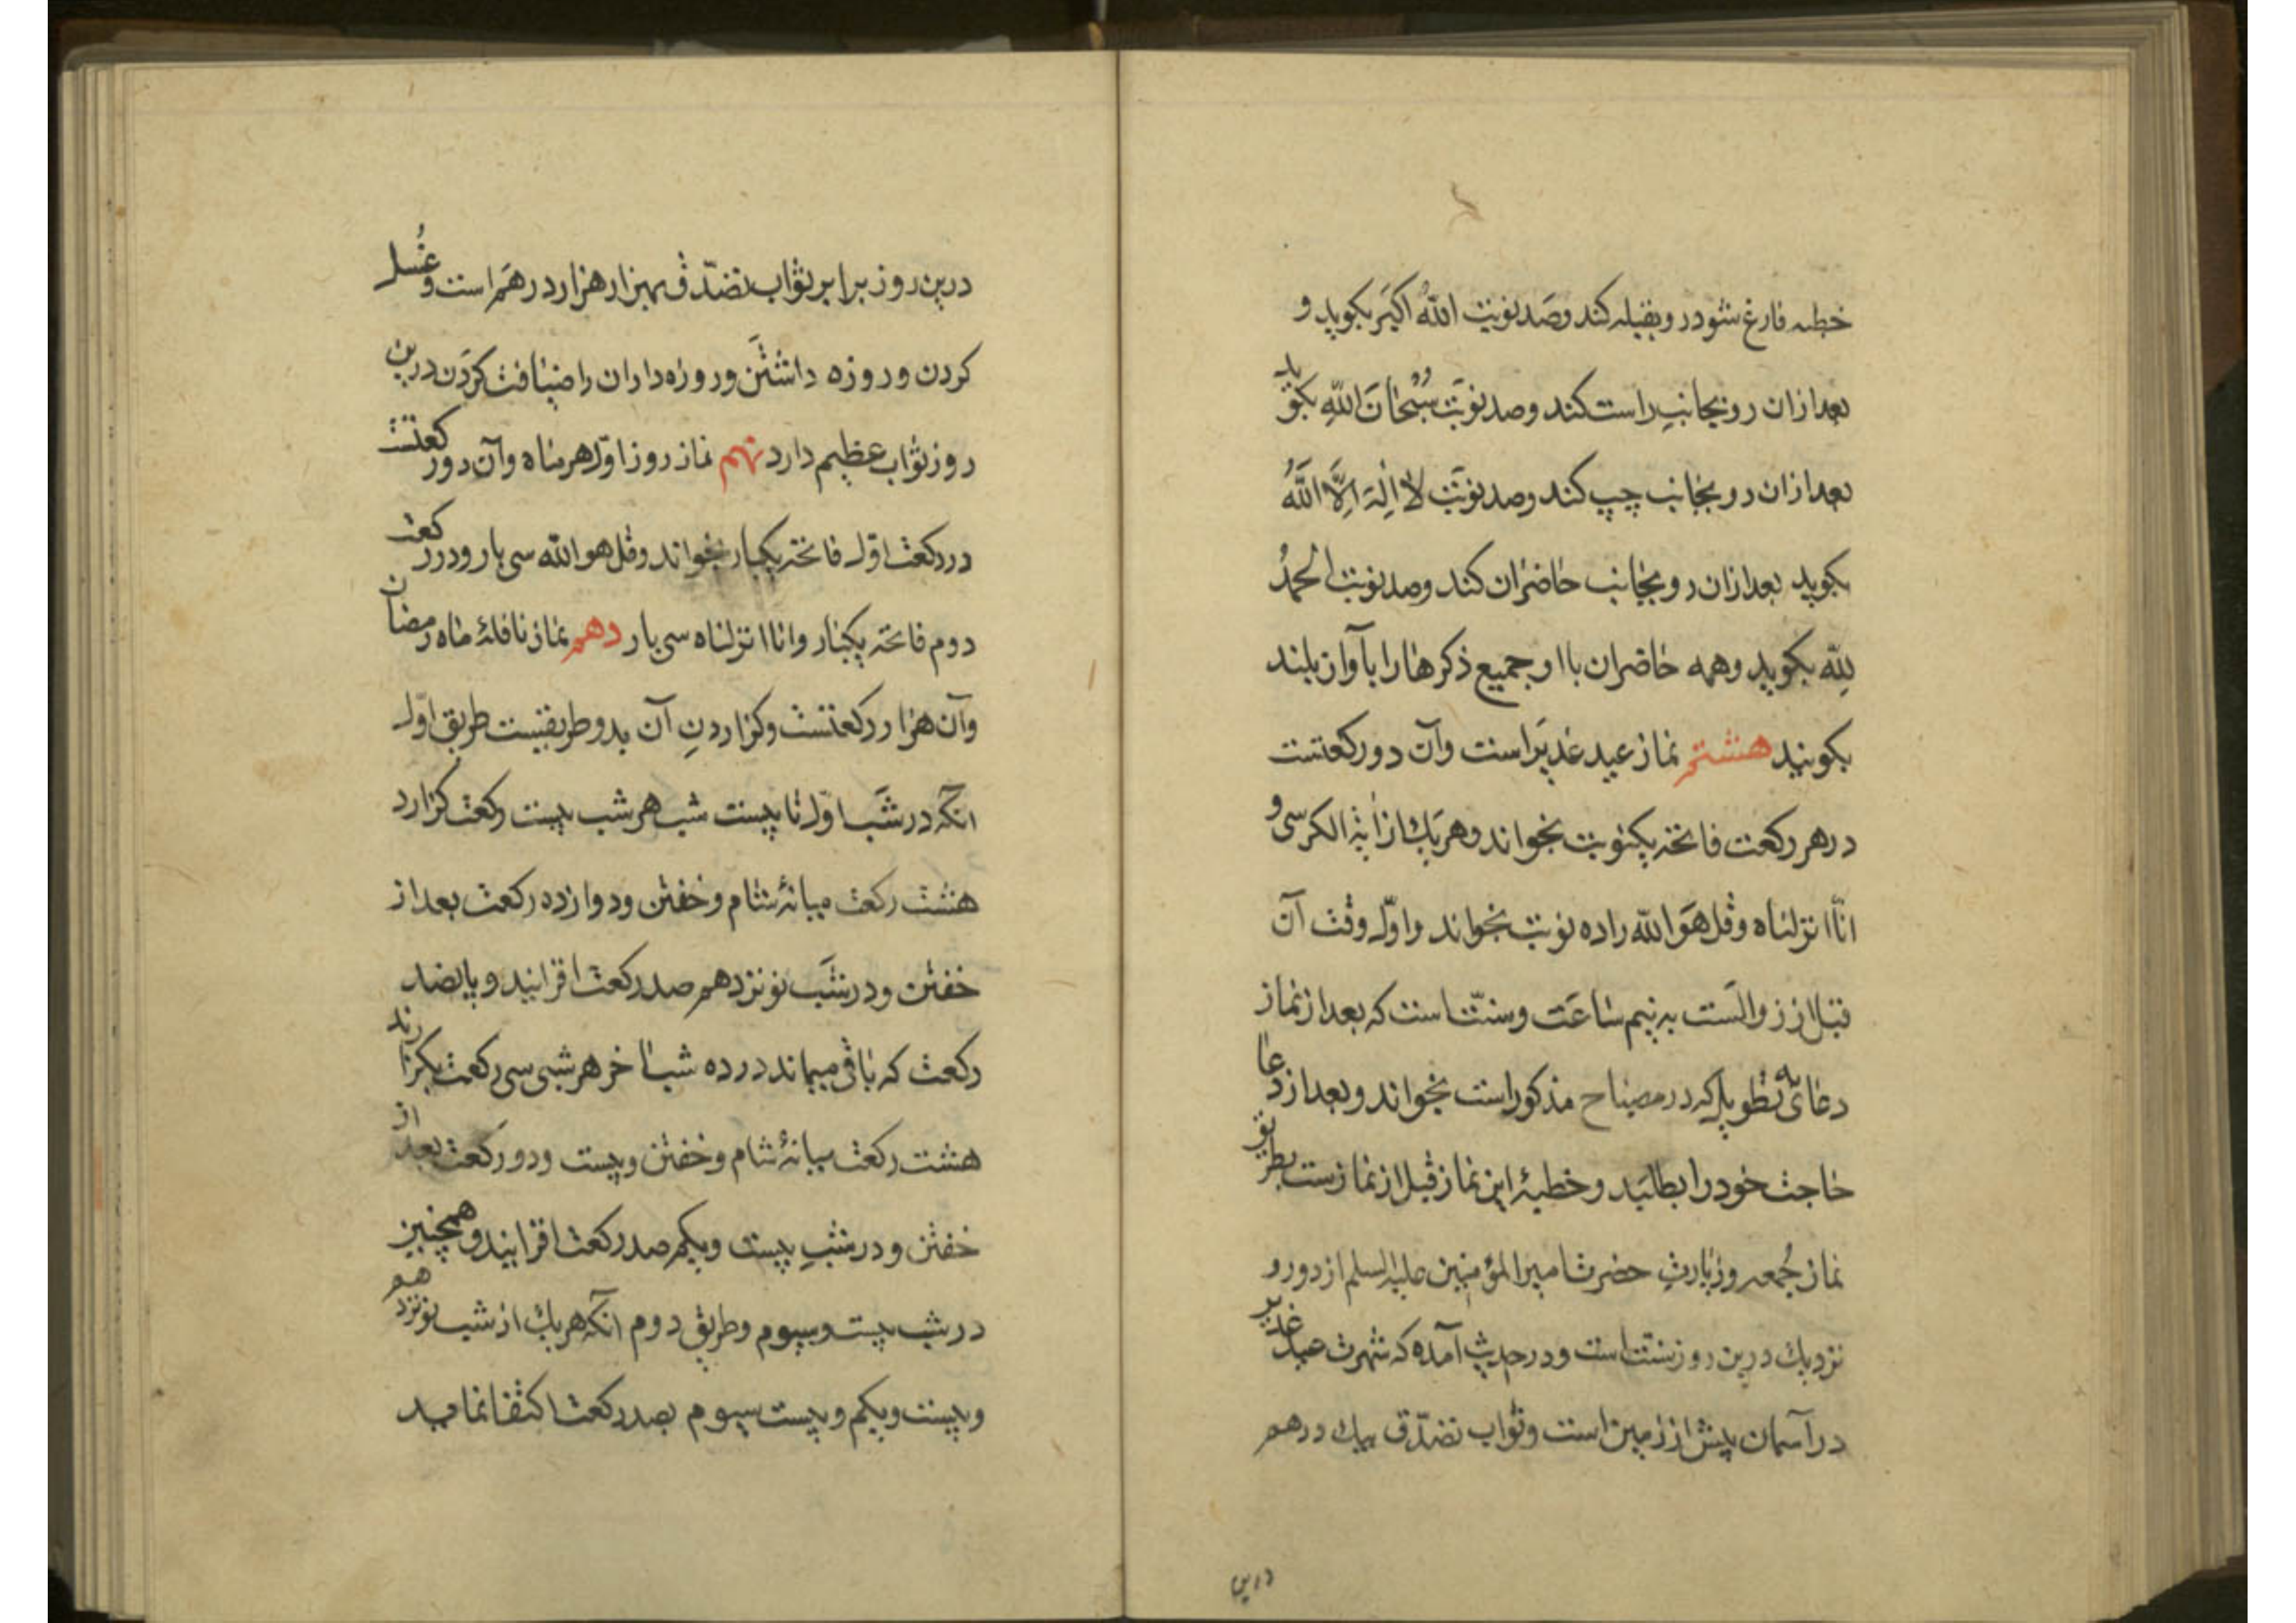 خطبه فارغ شود رو بقبله کند و صد نوبت اللهُ اکبَر بکوید و
بعد از ان رو بجانبِ راست کند و صد نوبَت سُبْحٰانَ اللهِ بکوید
بعد از ان رو بجانب چپ کند و صد نوبَت لا اِلٰهَ اِلَّا اللهُ
بکوید بعد از ان رو بجانب حاضران کند و صد نوبت الحمدُ
لِلّه بکوید و همه حاضران با او جمیع ذکرها را بآواز بلند
بکویند هشتم نماز عید غدیر است و آن دو رکعتست
در هر رکعت فاتحه یکنوبت بخواند و هر یك از اٰیة الکرسی و
انّا انزلناه و قل هَو الله را ده نوبت بخواند و اوّل وقت آن
قبل از زوالست به نیم ساعَت و سنّت است که بعد از نماز
دعائی که طویل که در مصباح مذکور است بخواند و بعد از دعا
حاجت خود را بطلبَد و خطبۀ این نماز قبل از نماز ست بطریق
نماز جُمعه و زیارتِ حضرت امیر المؤمنین علیه السلم از دور و
نزدیك درین روز سنّت است و در حدیث آمده که شهرت عید غدیر
در آسمان بیش از زمین است و ثواب تصدّق بیك درهم
درین
درین روز برابر ثواب تصدّق بهزار هزار درهَم است و غُسل
کردن و روزه داشتَن و روزه داران را ضیافت کرَدن درین
روز ثواب عظیم دارد نهم نماز روز اوّل هر ماه و آن دو رکعتست
در رکعت اوّل فاتحه یکبار بخواند و قل هو الله سی بار و در رکعت
دوم فاتحه یکبار و انا انزلناه سی بار دهم نماز نافلۀ ماه رمضان
و آن هزار رکعتست و کزاردنِ آن بدو طریقست طریق اوّل
انکه در شَب اوّل تا بیست شب هر شب بیست رکعت کزارد
هشت رکعت میانۀ شام و خفتن و دوازده رکعت بعد از
خفتن و در شَب نوزدهم صد رکعت افزایند و پانصد
رکعت که باقی میماند در ده شب اٰخر هر شبی سی رکعت بکزارند
هشت رکعت میانۀ شام و خفتن و بیست و دو رکعت بعد از
خفتن و در شبِ بیست و یکم صد رکعت افزایند و همچنین
در شب بیست و سیوم و طریق دوم آنکه هر یك از شب نوزدهم
و بیست و یکم و بیست سیوم بصد رکعت اکتفا نماید